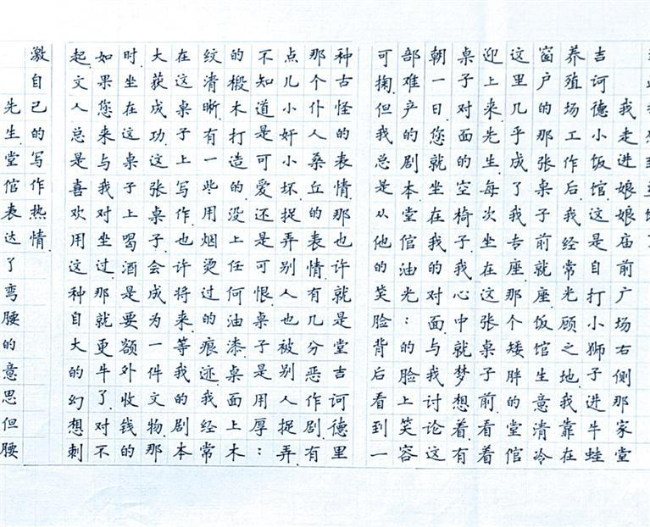 我走进娘娘庙前广场右侧那家堂
吉诃德小饭馆.这是自打小狮子进牛蛙
养殖场工作后我经常光顾之地.我靠在
窗户的那张桌子前就座.饭馆生意清冷
这里几乎成了我专座.那个矮胖的堂倌
迎上来.先生每次坐在这张桌子前.看着
桌子对面的空椅子.我心中就梦想着有
朝一日您就坐在我的对面.与我讨论这
部难产的剧本.堂倌油光:的脸上笑容
可掬.但我总是从他的笑脸背后看到一
种古怪的表情.那也许就是堂吉诃德里
那个仆人桑丘的表情.有几分恶作剧.有
点儿小奸小坏.捉弄别人也被别人捉弄.
不知道是可爱还是可恨.桌子是用厚:
的椴木打造的.没上任何油漆.桌面上木
纹清晰.有一些用烟烫过的痕迹.我经常
在这桌子上写作.也许将来等我的剧本
大获成功.这张桌子会成为一件文物.那
时坐在这桌子上喝酒是要额外收钱的.
如果您来与我对坐过.那就更牛了.对不
起文人总是喜欢用这种自大的幻想刺
激自己的写作热情.
先生堂倌表达了弯腰的意思但腰